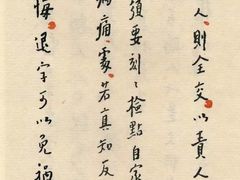 人則全交以責人
須要刻々檢點自家
病痛處若真知反
悔退字可以免禍